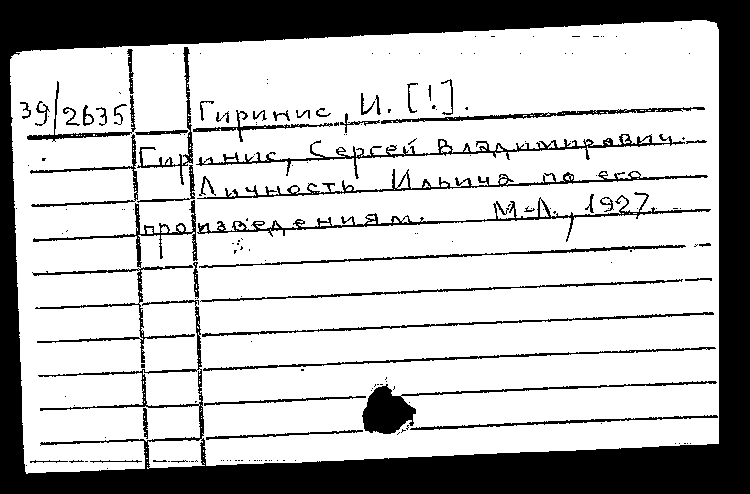 39/2635 Гиринис, И. [!].
Гиринис, Сергей Владимирович.
Личность Ильича по его
произведениям. М.-Л., 1927.